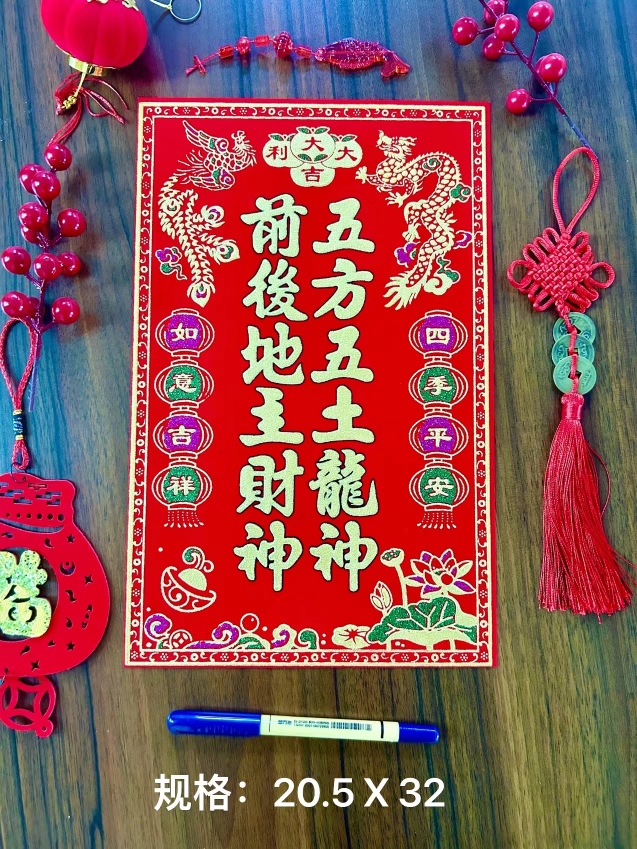 大
利 大
吉
五方五土龍神
前後地主財神
四季平安
如意吉祥
规格：20.5 X 32